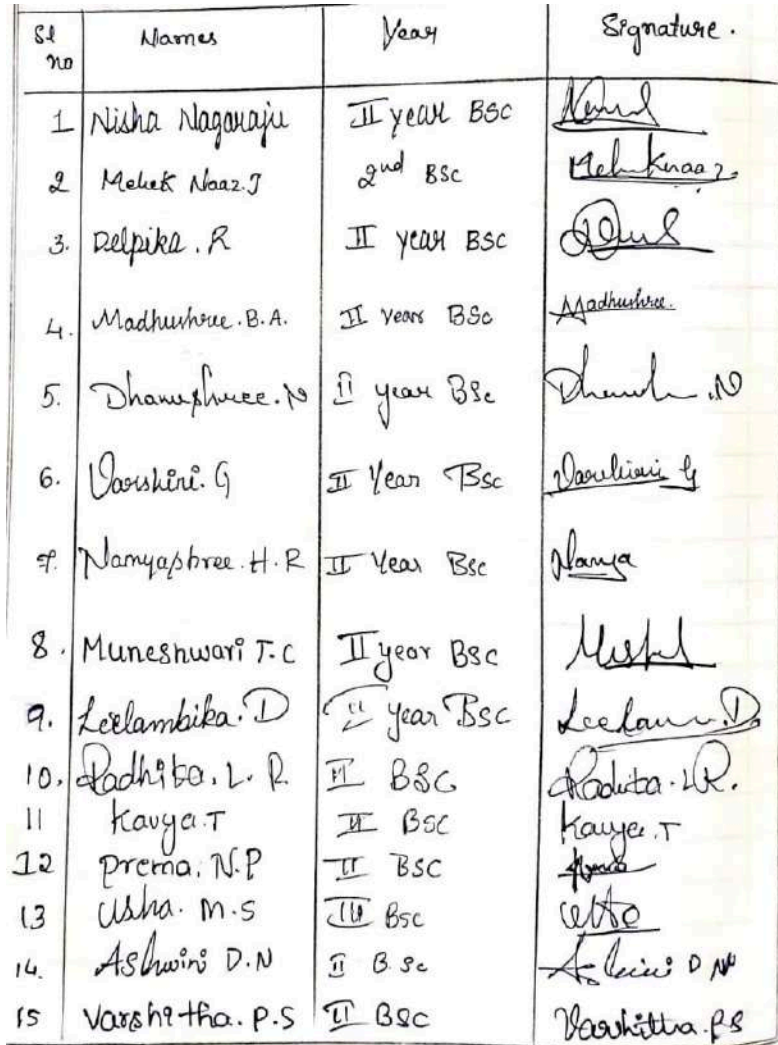 Sl no Names Year Signature.
1 Nisha Nagaraju II year BSC
2 Mehek Naaz.J 2nd BSC Meheknaaz.
3. Delpika.R II year BSC
4. Madhushree.B.A. II Year BSc Madhushree.
5. Dhanushree.N II year BSc .N
6. Varshini.G II Year BSc Varshini G
7. Namyashree.H.R II Year BSc
8. Muneshwari T.C II year BSC
9. Leelambika.D II year BSC
10. Radhika.L.R II BSC Radhika.L.R.
11 Kavya.T II BSC Kavya.T
12 Prema.N.P II BSC
13 Usha.M.S III BSC
14. Ashwini D.N II B.Sc Ashwini D N
15 Varshitha.P.S II BSC Varshitha.P.S